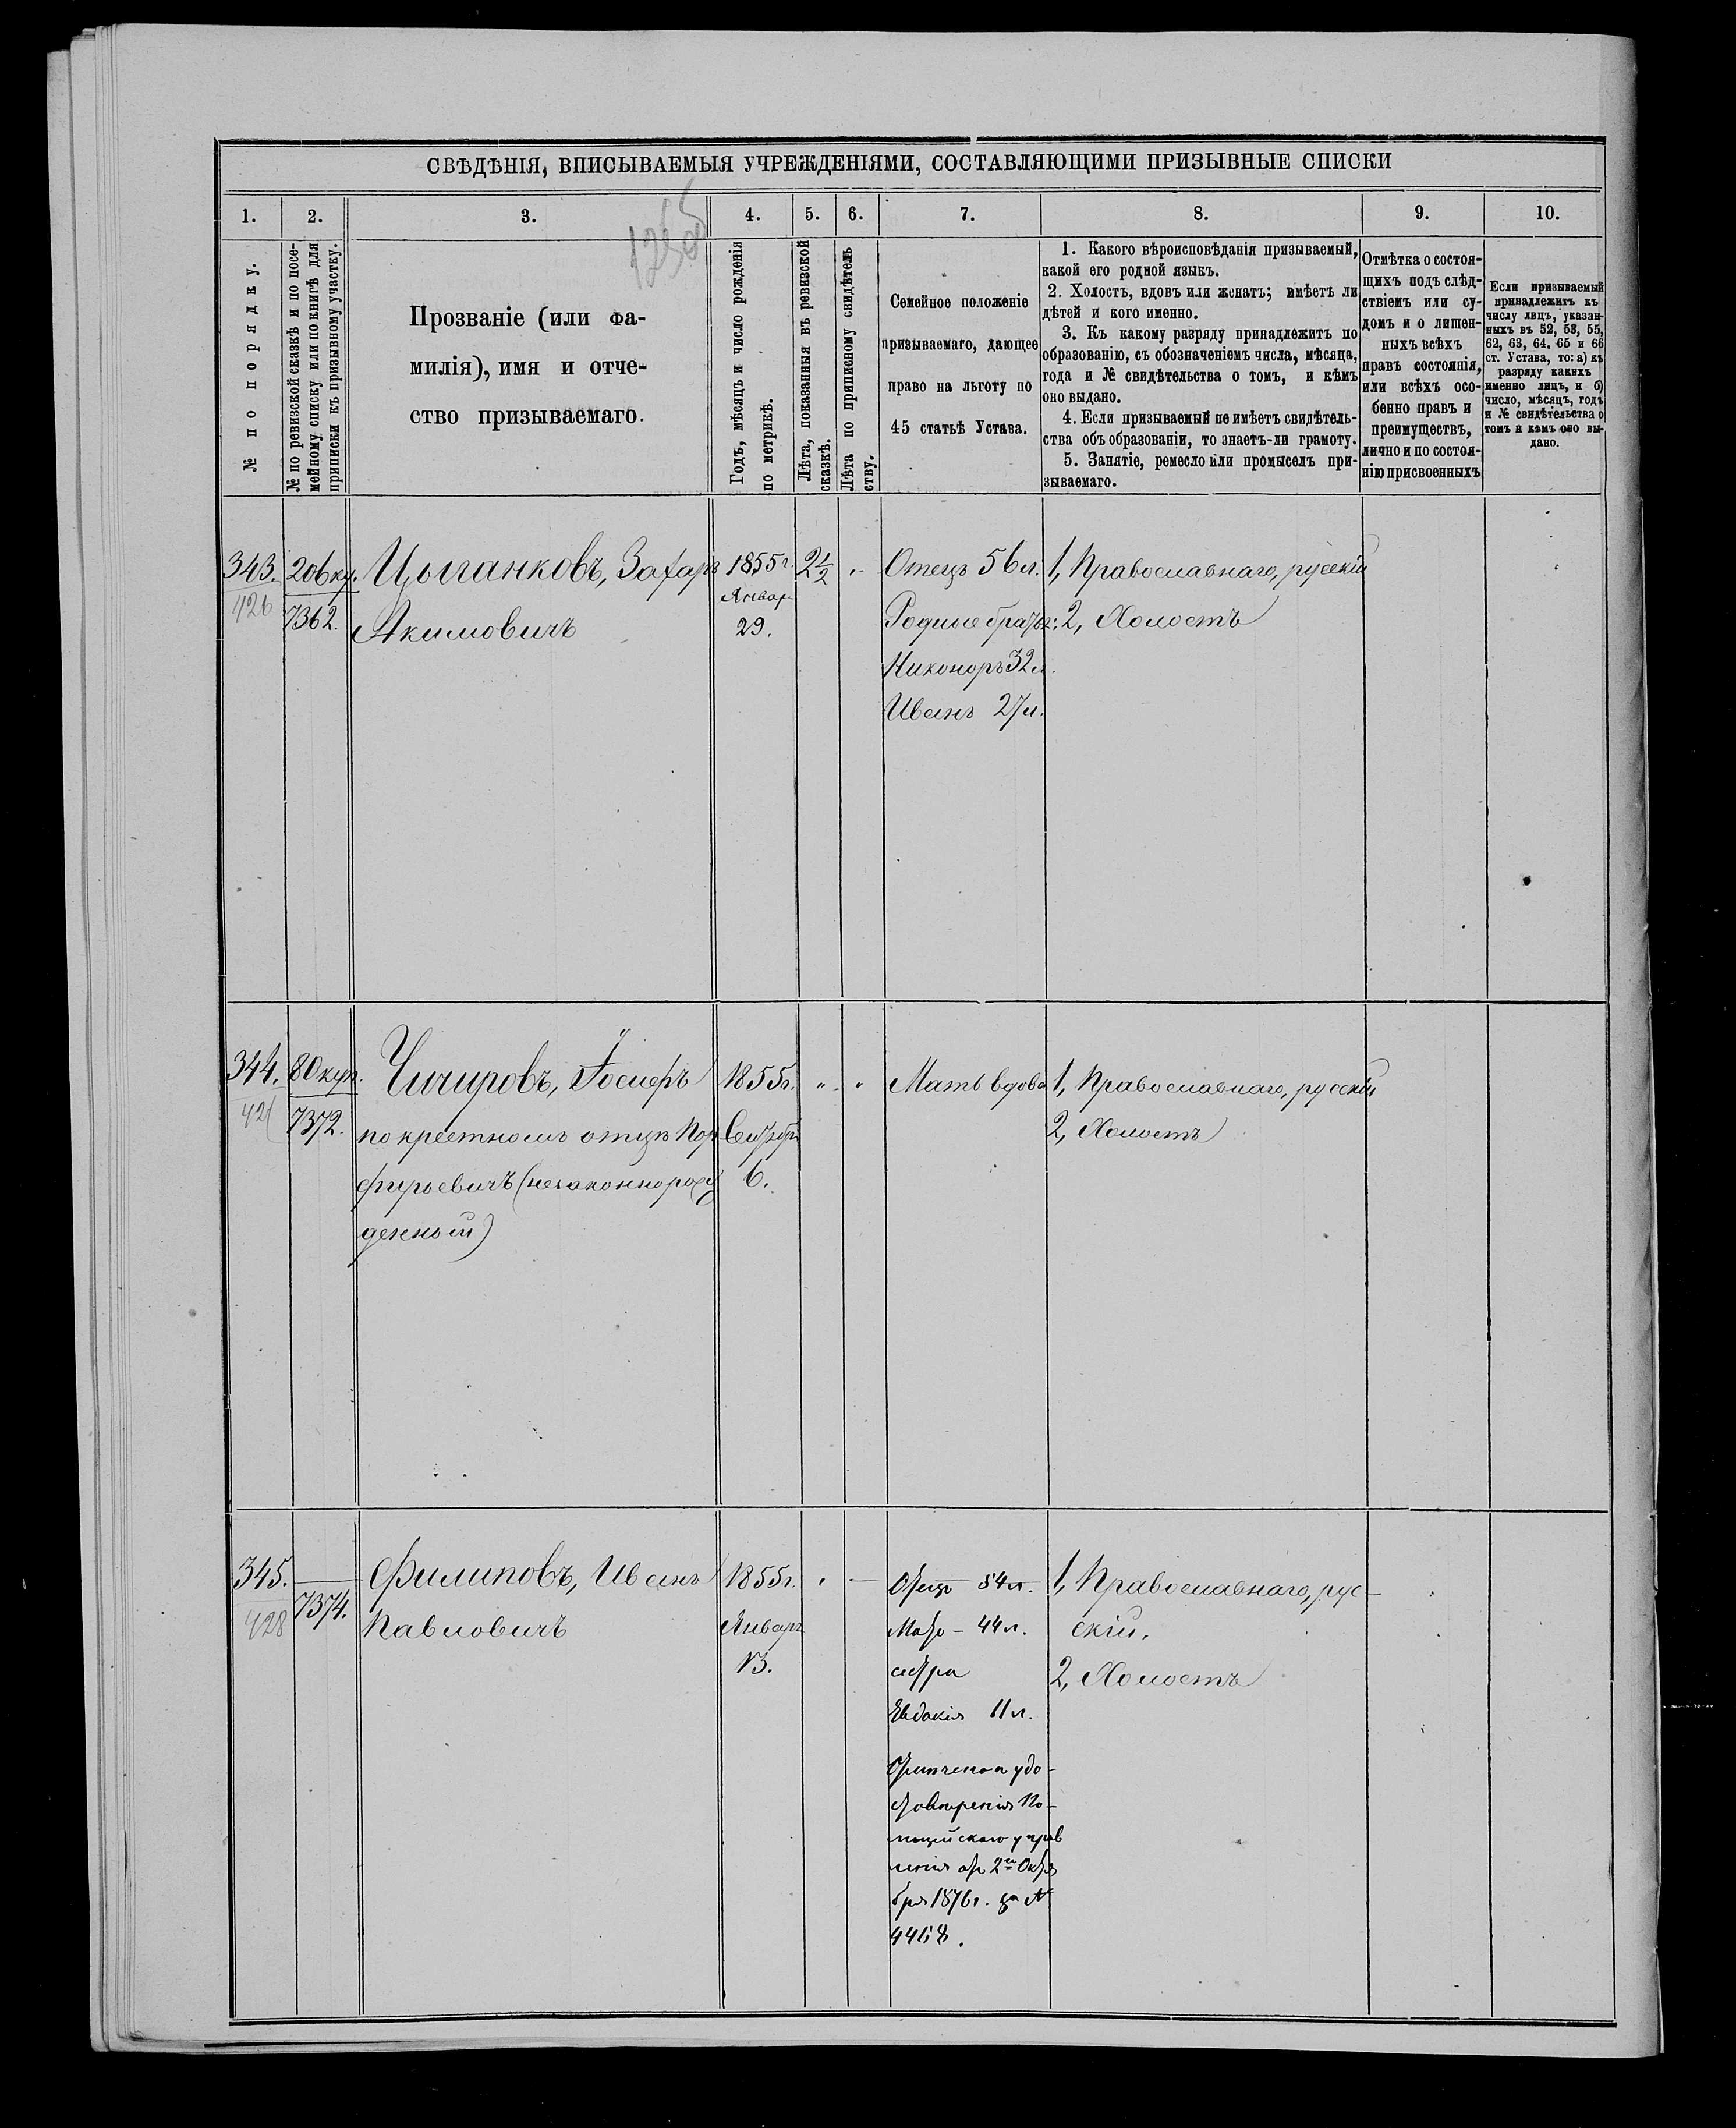 СВѢДѢНІЯ, ВПИСЫВАЕМЫЯ УЧРЕЖДЕНІЯМИ, СОСТАВЛЯЮЩИМИ ПРИЗЫВНЫЕ СПИСКИ
1. 2. 3. 4. 5. 6. 7. 8. 9. 10.
№ по порядку.
№ по ревизской сказкѣ и по посе-
мейному списку или по книгѣ для
приписки къ призывному участку.
Прозваніе (или фа-
милія), имя и отче-
ство призываемаго.
Годъ, мѣсяцъ и число рожденія
по метрикѣ.
Лѣта, показанныя въ ревизской
сказкѣ.
Лѣта по приписному свидѣтель
ству.
Семейное положеніе
призываемаго, дающее
право на льготу по
45 статьѣ Устава.
1. Какого вѣроисповѣданія призываемый,
какой его родной языкъ.
2. Холостъ, вдовъ или женатъ; имѣетъ ли
дѣтей и кого именно.
3. Къ какому разряду принадлежитъ по
образованію, съ обозначеніемъ числа, мѣсяца,
года и № свидѣтельства о томъ, и кѣмъ
оно выдано.
4. Если призываемый не имѣетъ свидѣтель-
ства объ образованіи, то знаетъ-ли грамоту.
5. Занятіе, ремесло или промыселъ при-
зываемаго.
Отмѣтка о состоя-
щихъ подъ слѣд-
ствіемъ или су-
домъ и о лишен-
ныхъ всѣхъ
правъ состоянія,
или всѣхъ осо-
бенно правъ и
преимуществъ,
лично и по состоя-
нію присвоенныхъ
Если призываемый
принадлежитъ къ
числу лицъ, указан-
ныхъ въ 52, 53, 55,
62, 63, 64, 65 и 66
ст. Устава, то: а) къ
разряду какихъ
именно лицъ, и б)
число, мѣсяцъ, годъ
и № свидѣтельства о
томъ и кѣмъ оно вы-
дано.
343.
426
206 куп.
7362.
Цыганковъ, Захаръ
Акимовичъ
1855 г.
Январ.
29.
2 1/2
Отецъ 56 л.
Родные братья:
Никоноръ 32 л.
Иванъ 27 л.
1, Православнаго, русскій
2, Холостъ
344.
427
80 куп.
7372.
Чичировъ, Іосифъ
по крестному отцу Пор
фирьевичъ (незаконнорож
денный)
1855 г.
Сентябр.
6.
Мать вдова
1, Православнаго, русскій
2, Холостъ
345.
428
7374.
Филиповъ, Иванъ
Павловичъ
1855 г.
Январь
13.
Отецъ – 54 л.
Мать – 44 л.
сестра
Евдокія 11 л.
Отмѣчено на удо-
стовѣренія По-
лицейскаго управ
ленія отъ 2го Октя
бря 1876 г. за №
4468.
1, Православнаго, рус-
скій.
2, Холостъ